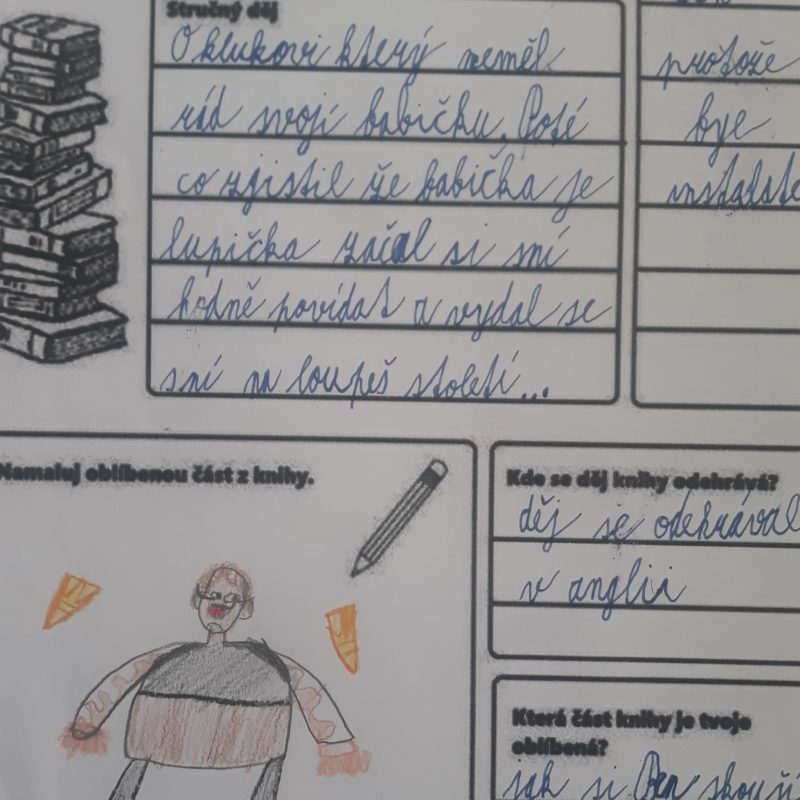 Stručný děj
O klukovi který neměl
rád svojí babičku. Poté
co zjistil že babička je
lupička začal si sní
hodně povídat a vydal se
sní na loupeš století...
protože
bye
instalate
Namaluj oblíbenou část z knihy.
Kde se děj knihy odehrává?
děj se odehrával
v anglii
Která část knihy je tvoje
oblíbená?
jak si Ben skouší